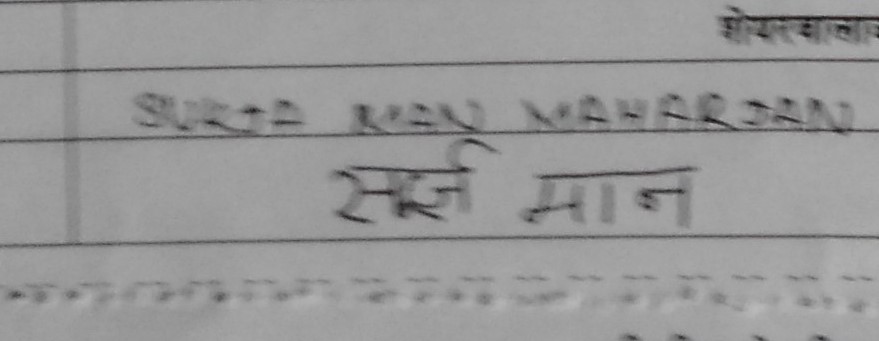 शेयरवाला
SURJA MAN MAHARJAN
सूर्ज मान